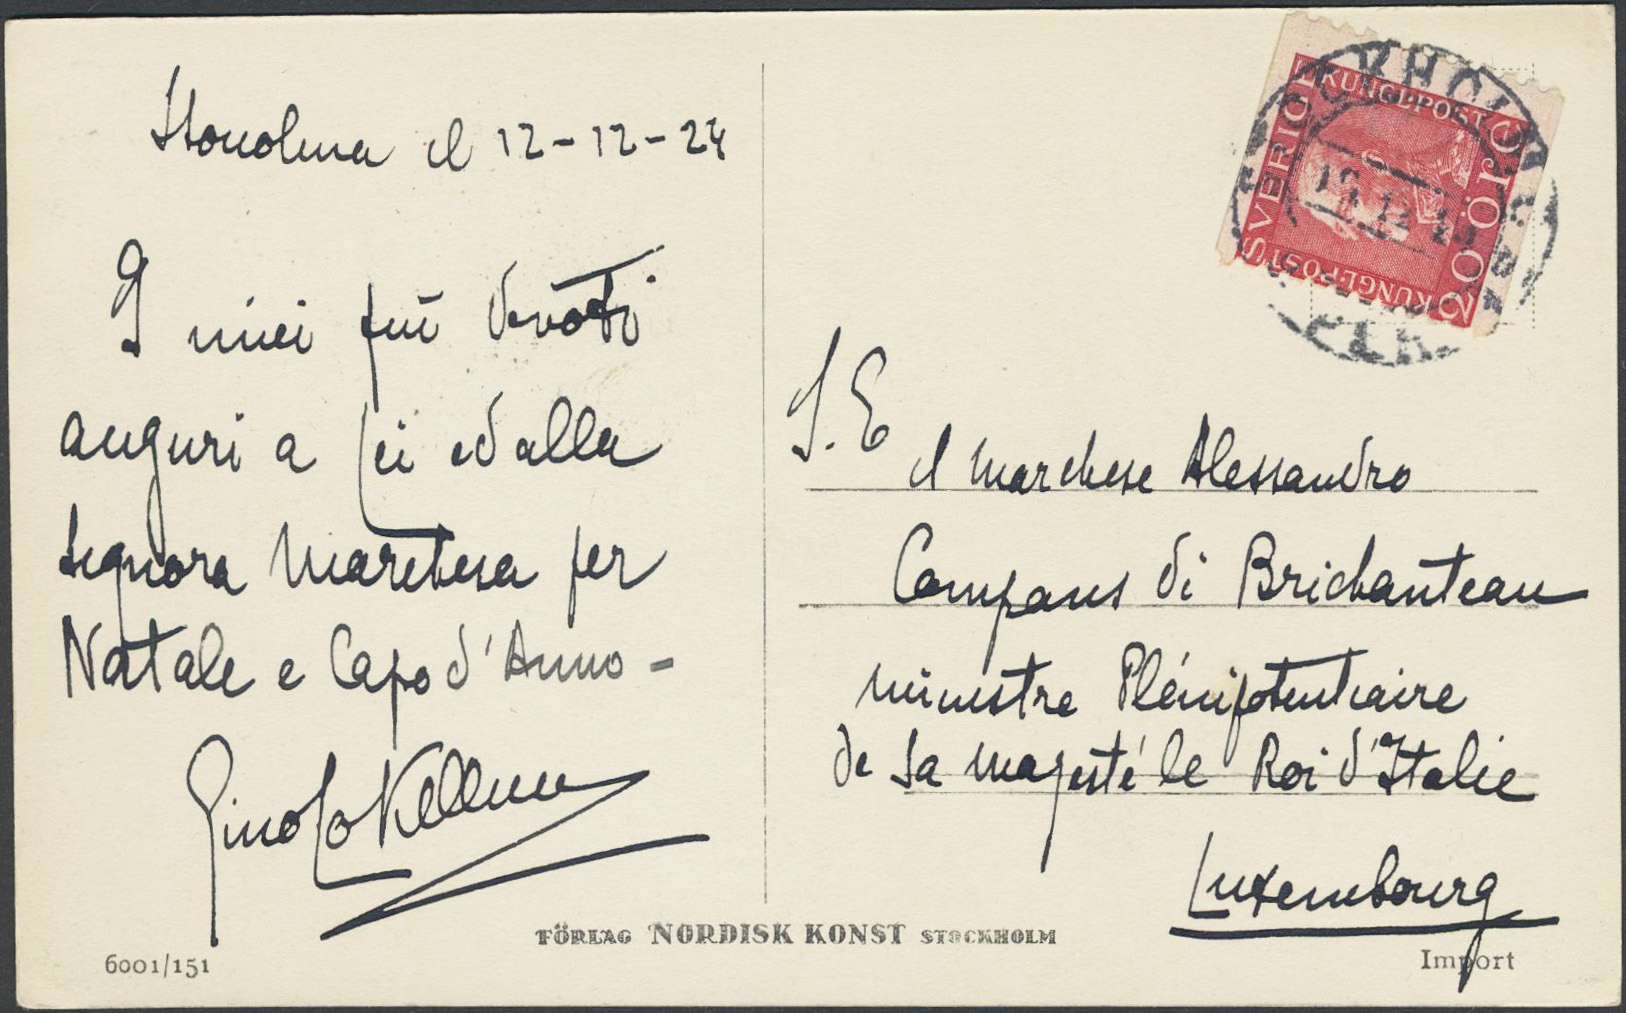 Stoccolma il 12-12-24
I miei più devoti
auguri a Lei ed alla
Signora Marchesa per
Natale e Capo d'Anno -
S. E
il Marchese Alessandro
Compans di Brichanteau
ministre Plénipotentiaire
de Sa majesté le Roi d'Italie
Luxembourg
SVERIGE
KUNGL·POST
20 ÖRE
KUNGL·POST
FÖRLAG NORDISK KONST STOCKHOLM
6001/151
Import